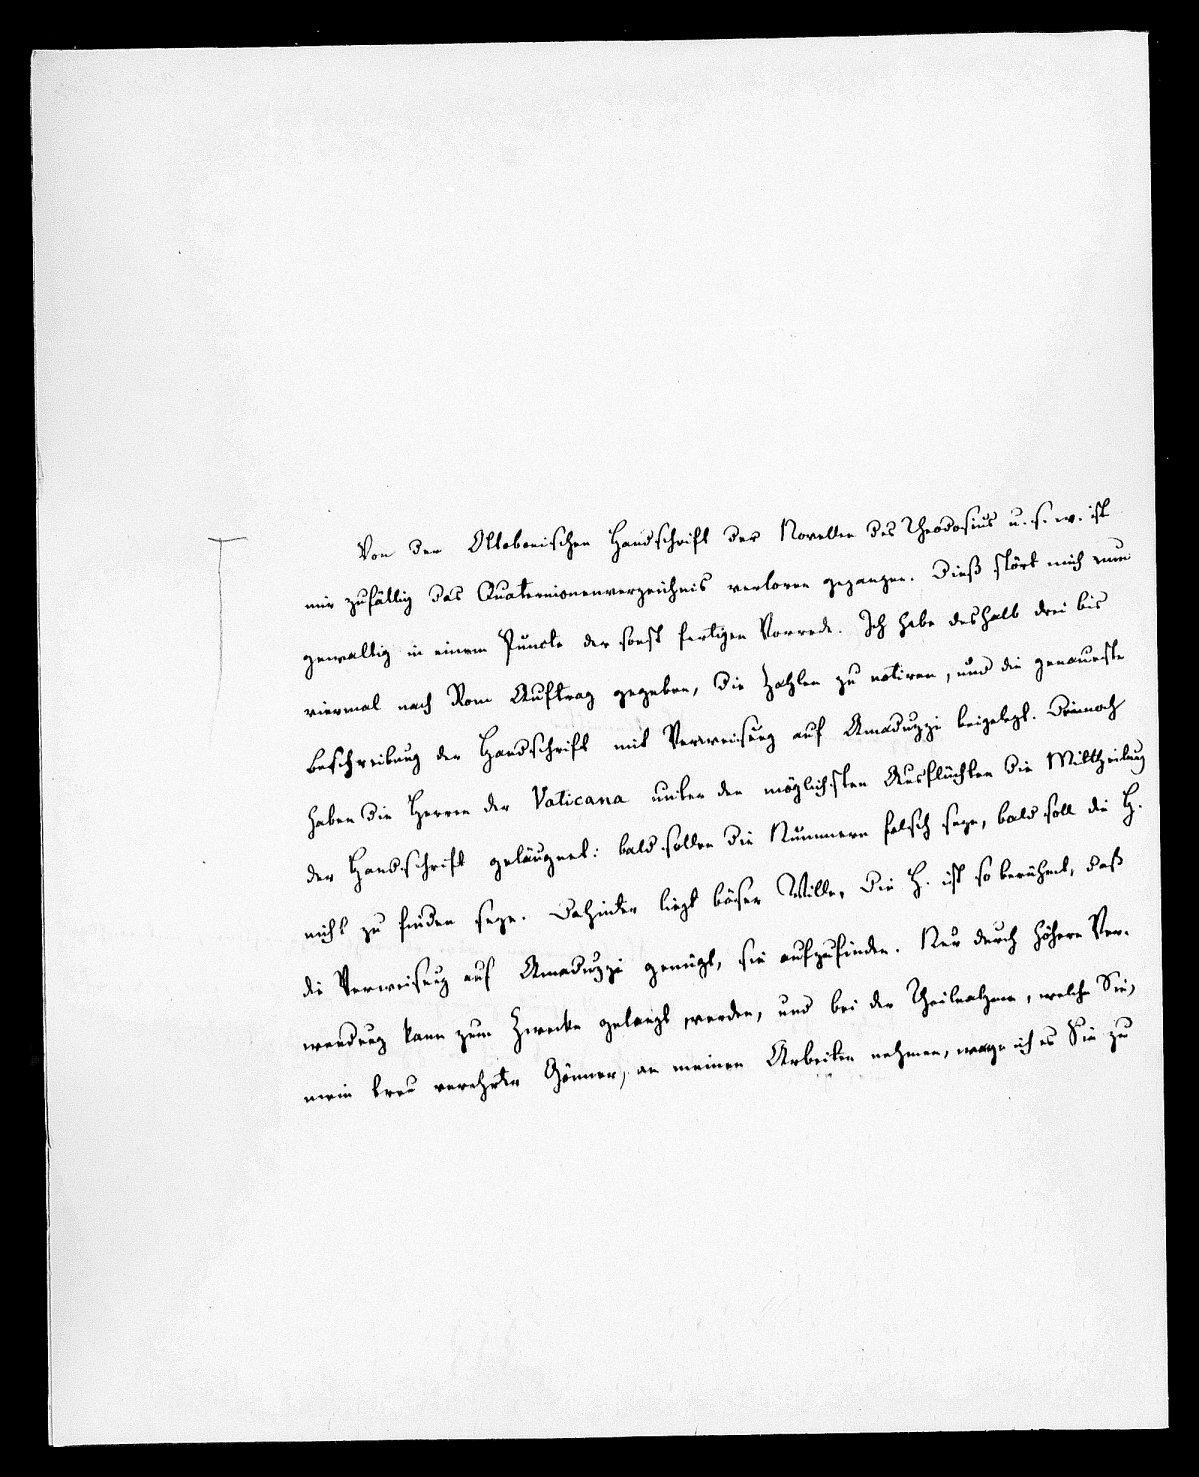 Von der Ottobonischen Handschrift der Novellen des Theodosius u. s. w. ist
mir zufällig das Quaternionenverzeichnis verloren gegangen. Dieß stört mich nun
gewaltig in einem Puncte der sonst fertigen Vorrede. Ich habe deshalb drei bis
viermal nach Rom Auftrag gegeben, die Zahlen zu notiren, und die genaueste
Beschreibung der Handschrift mit Verweisung auf Amaduzzi beigelegt. Dennoch
haben die Herren der Vaticana unter den möglichsten Ausflüchten die Mittheilung
der Handschrift geläugnet: bald sollen die Nummern falsch seyn, bald soll die H.
nicht zu finden seyn. Dahinter liegt böser Wille. Die H. ist so berühmt, daß
die Verweisung auf Amaduzzi genügt, sie aufzufinden. Nur durch höhere Ver-
wendung kann zum Zwecke gelangt werden, und bei der Theilnahme, welche Sie,
mein treu verehrter Gönner, an meinen Arbeiten nehmen, wage ich es Sie zu